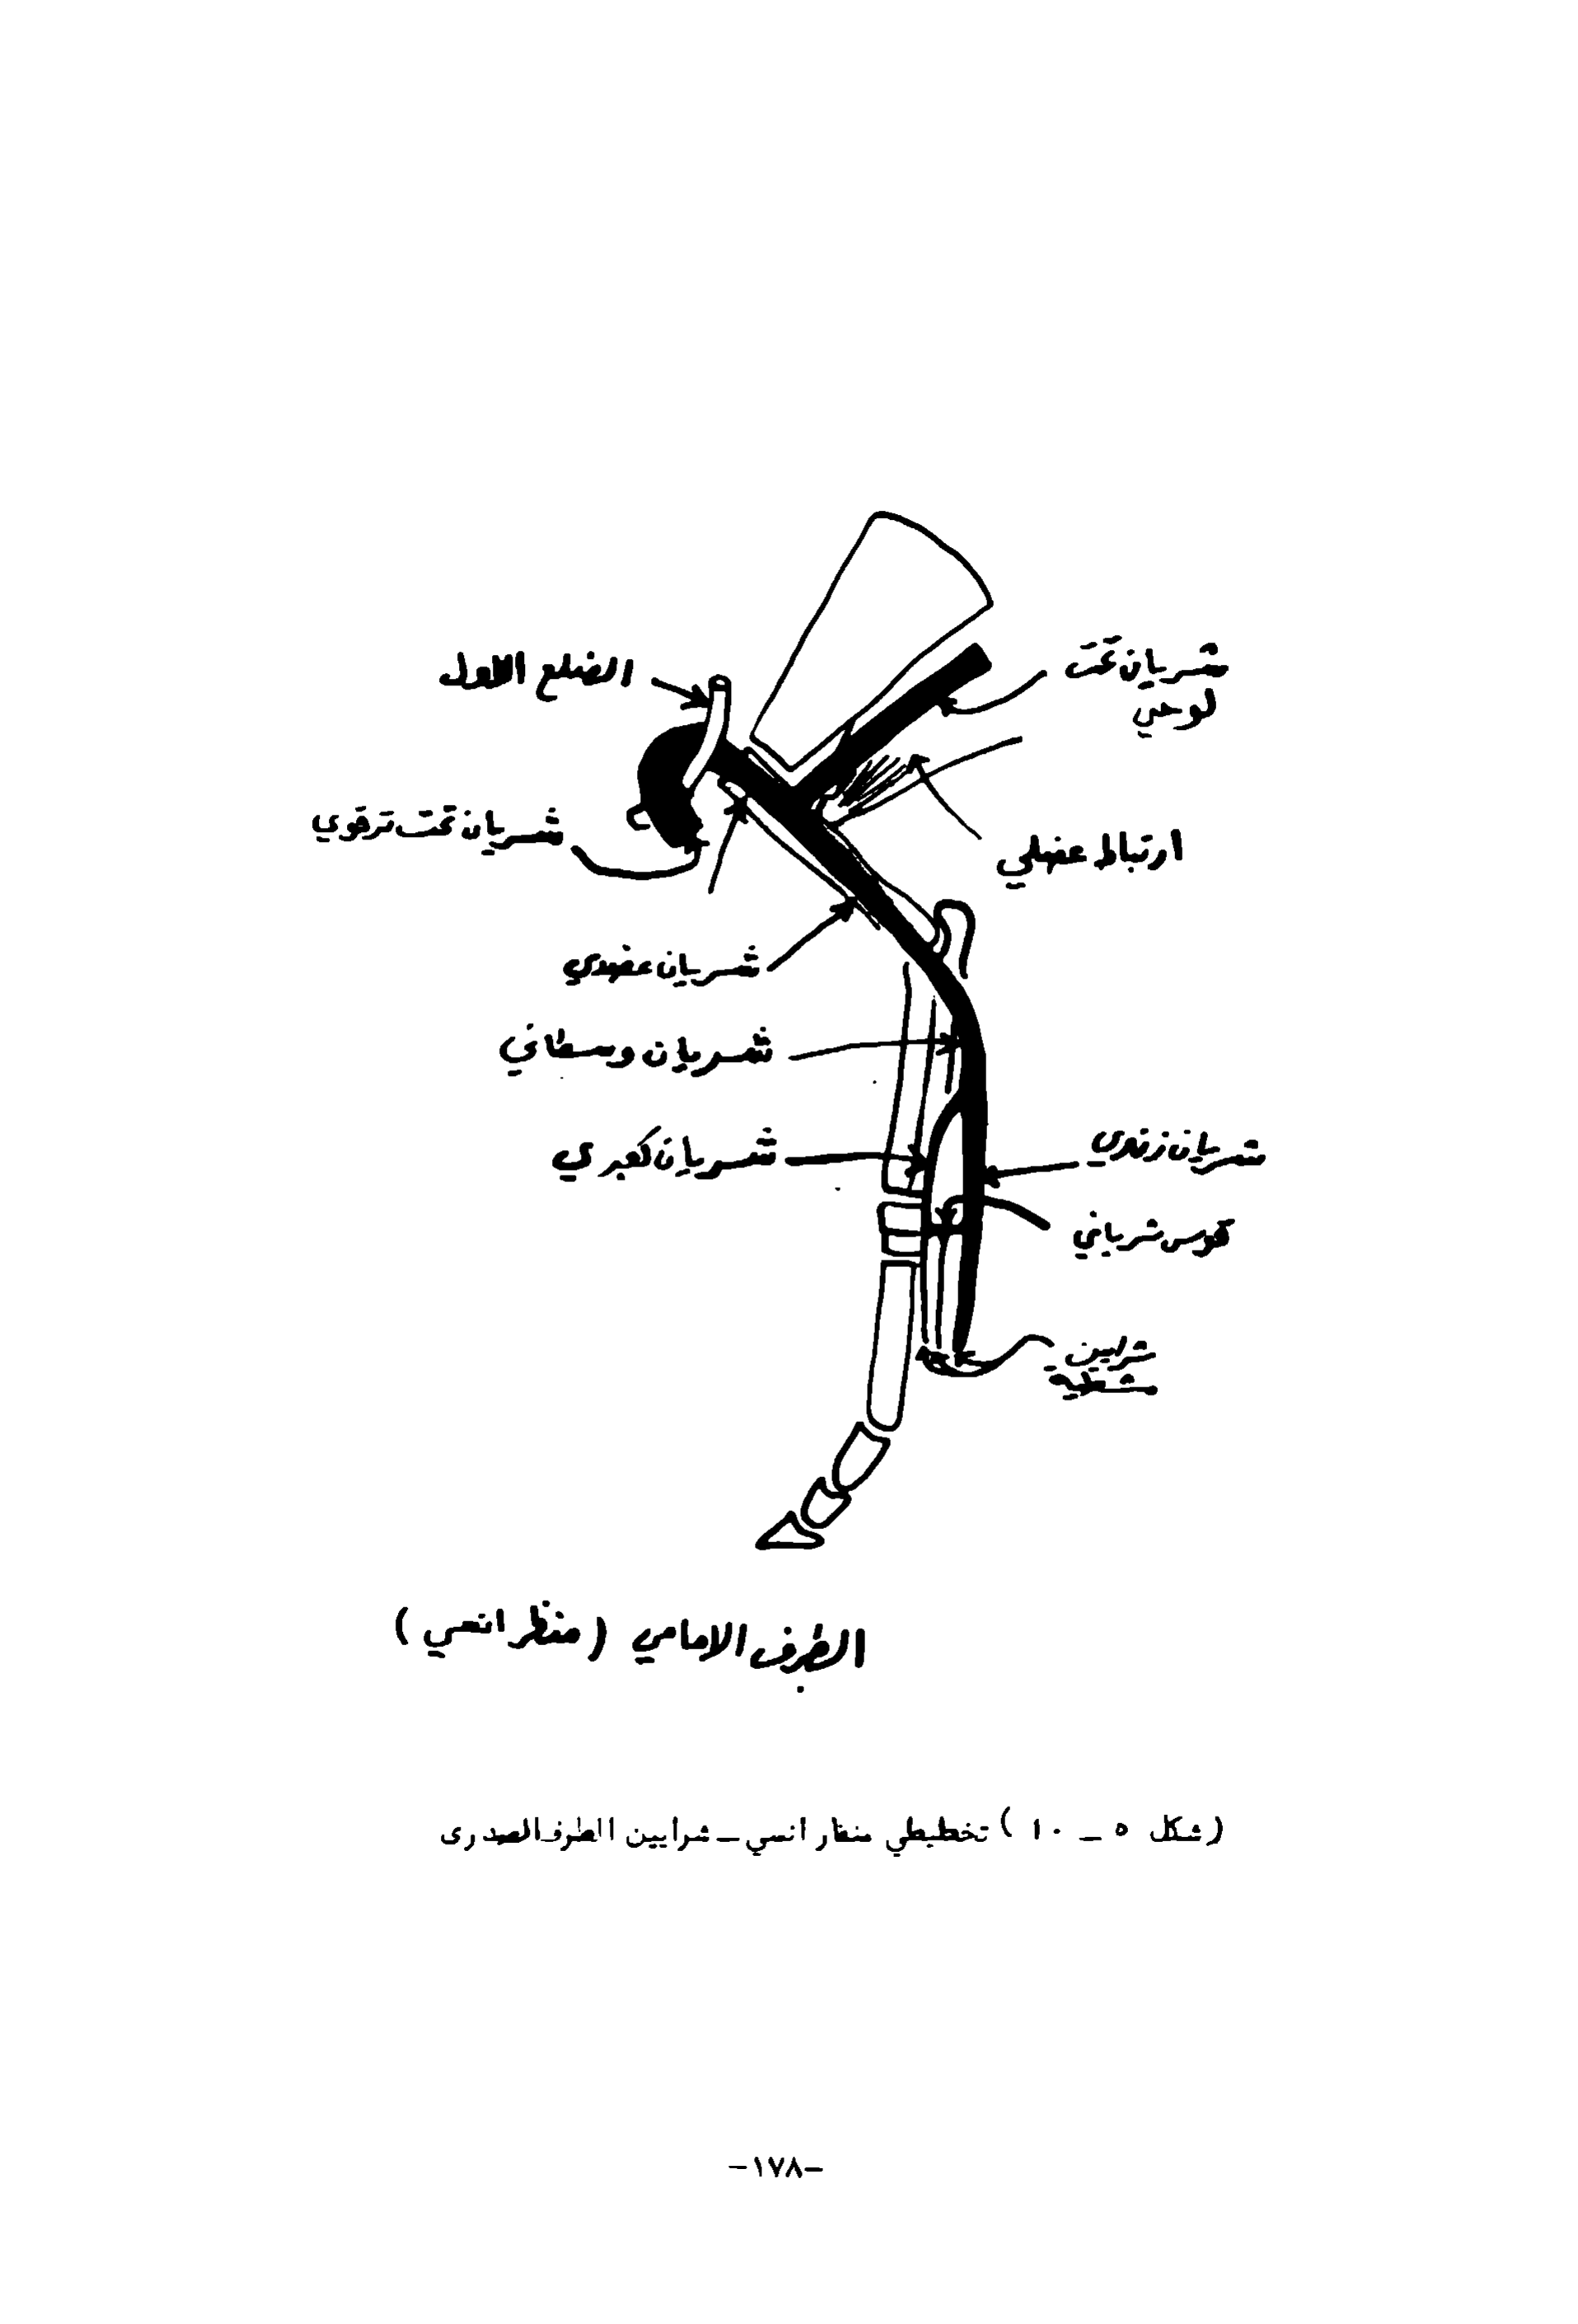 شريان تحت
لوحي
الضلع الاول
شريان تحت ترقوي
ارتباط عضلي
شريان عضدي
شريان وسطاني
شريان كعبري
شريان زندي
قوس شرياني
شرايين
مشطية
الطرف الامامي (منظر انسي)
(شكل ٥ – ١٠) تخطيطي منظر انسي – شرايين الطرف الصدرى
-١٧٨-